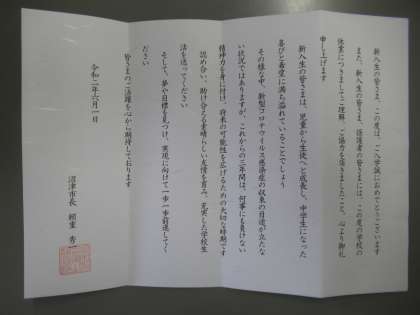 新入生の皆さま、この度は、ご入学誠におめでとうございます
また、新入生の皆さま、保護者の皆さまには、この度の学校の
休業につきましてご理解、ご協力を頂きましたこと、心より御礼
申し上げます
新入生の皆さまは、児童から生徒へと成長し、中学生になった
喜びと希望に満ち溢れていることでしょう
その様な中、新型コロナウイルス感染症の収束の目途が立たな
い状況ではありますが、これからの三年間は、何事にも負けない
精神力を身に付け、将来の可能性を広げるための大切な時期です
認め合い、助け合える素晴らしい友情を育み、充実した学校生
活を送ってください
そして、夢や目標を見つけ、実現に向けて一歩一歩前進してく
ださい
皆さまのご活躍を心から期待しております
令和二年六月一日
沼津市長 賴重 秀一